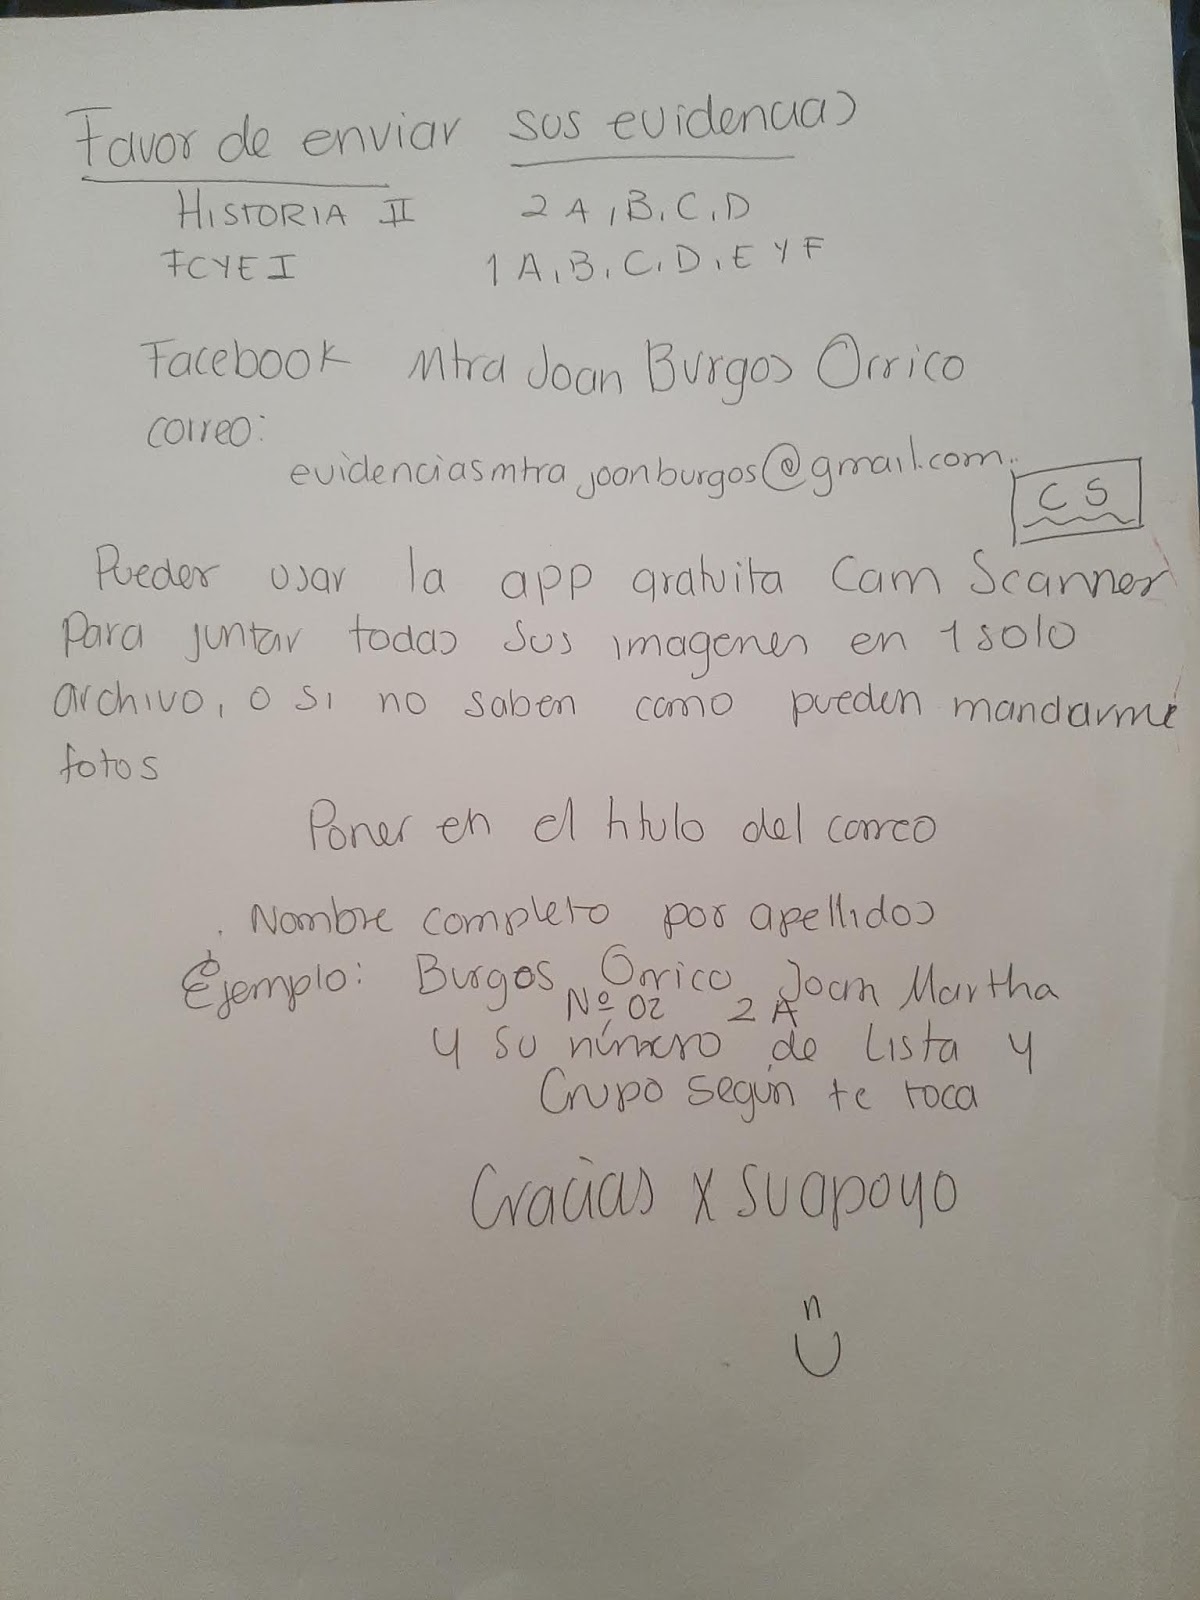 Favor de enviar sus evidencias
HISTORIA II 2 A, B, C, D
FCYE I 1 A, B, C, D, E Y F
Facebook Mtra Joan Burgos Orrico
correo:
evidenciasmtrajoanburgos@gmail.com
CS
Pueden usar la app gratuita Cam Scanner
Para juntar todas sus imagenes en 1 solo
archivo, o si no saben como pueden mandarme
fotos
Poner en el titulo del correo
Nombre completo por apellidos
Ejemplo: Burgos Orrico Joan Martha
Nº 02 2 A
y su número de Lista y
Grupo según te toca
Gracias x su apoyo